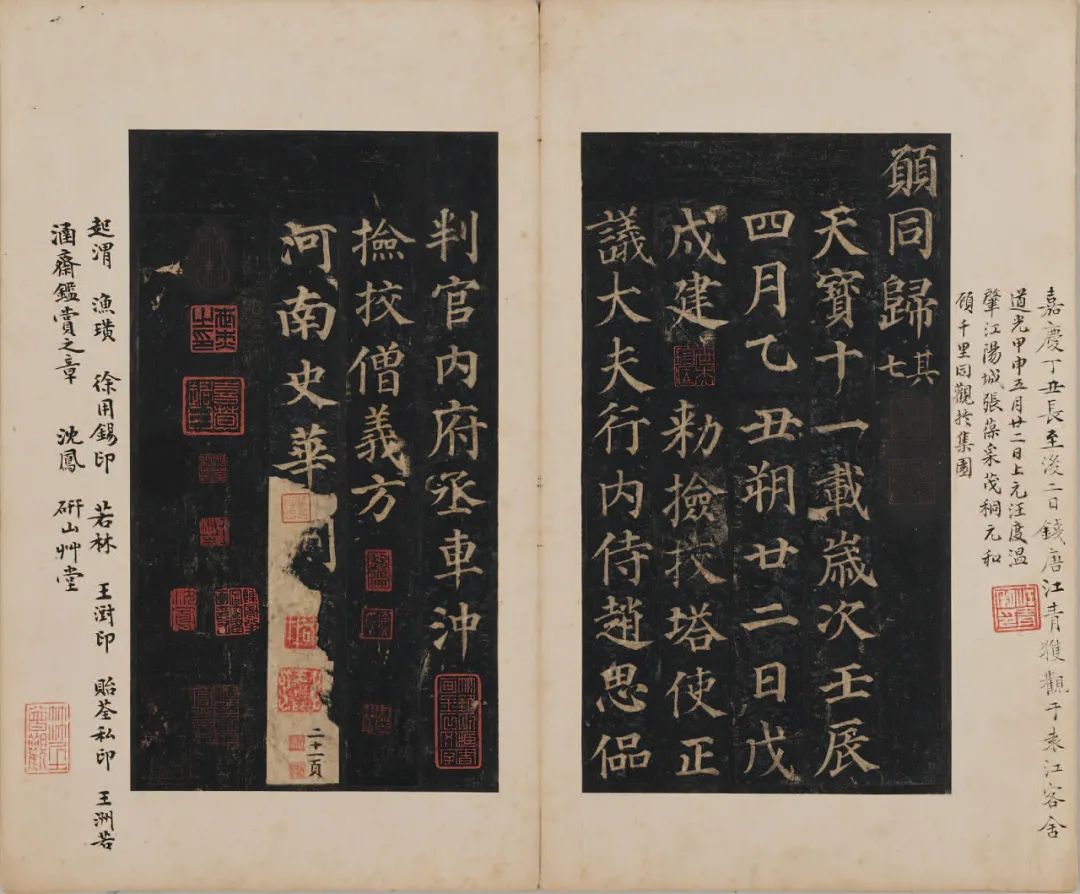 嘉慶丁丑長至後二日錢唐江青獲觀于袁江客舍
道光甲申五月廿二日上元汪度溫
肇江陽城張葆采茂稠元和
顧千里同觀於集園
願同歸其七
天寶十一載歲次壬辰
四月乙丑朔廿二日戊
戍建 勑撿挍塔使正
議大夫行內侍趙思偘
判官內府丞車沖
撿挍僧義方
河南史華
二十一頁
起渭 漁璜 徐用錫印 若林 王澍印 貽荃私印 王洲若
涵齋鑑賞之章 沈鳳 硏山艸堂